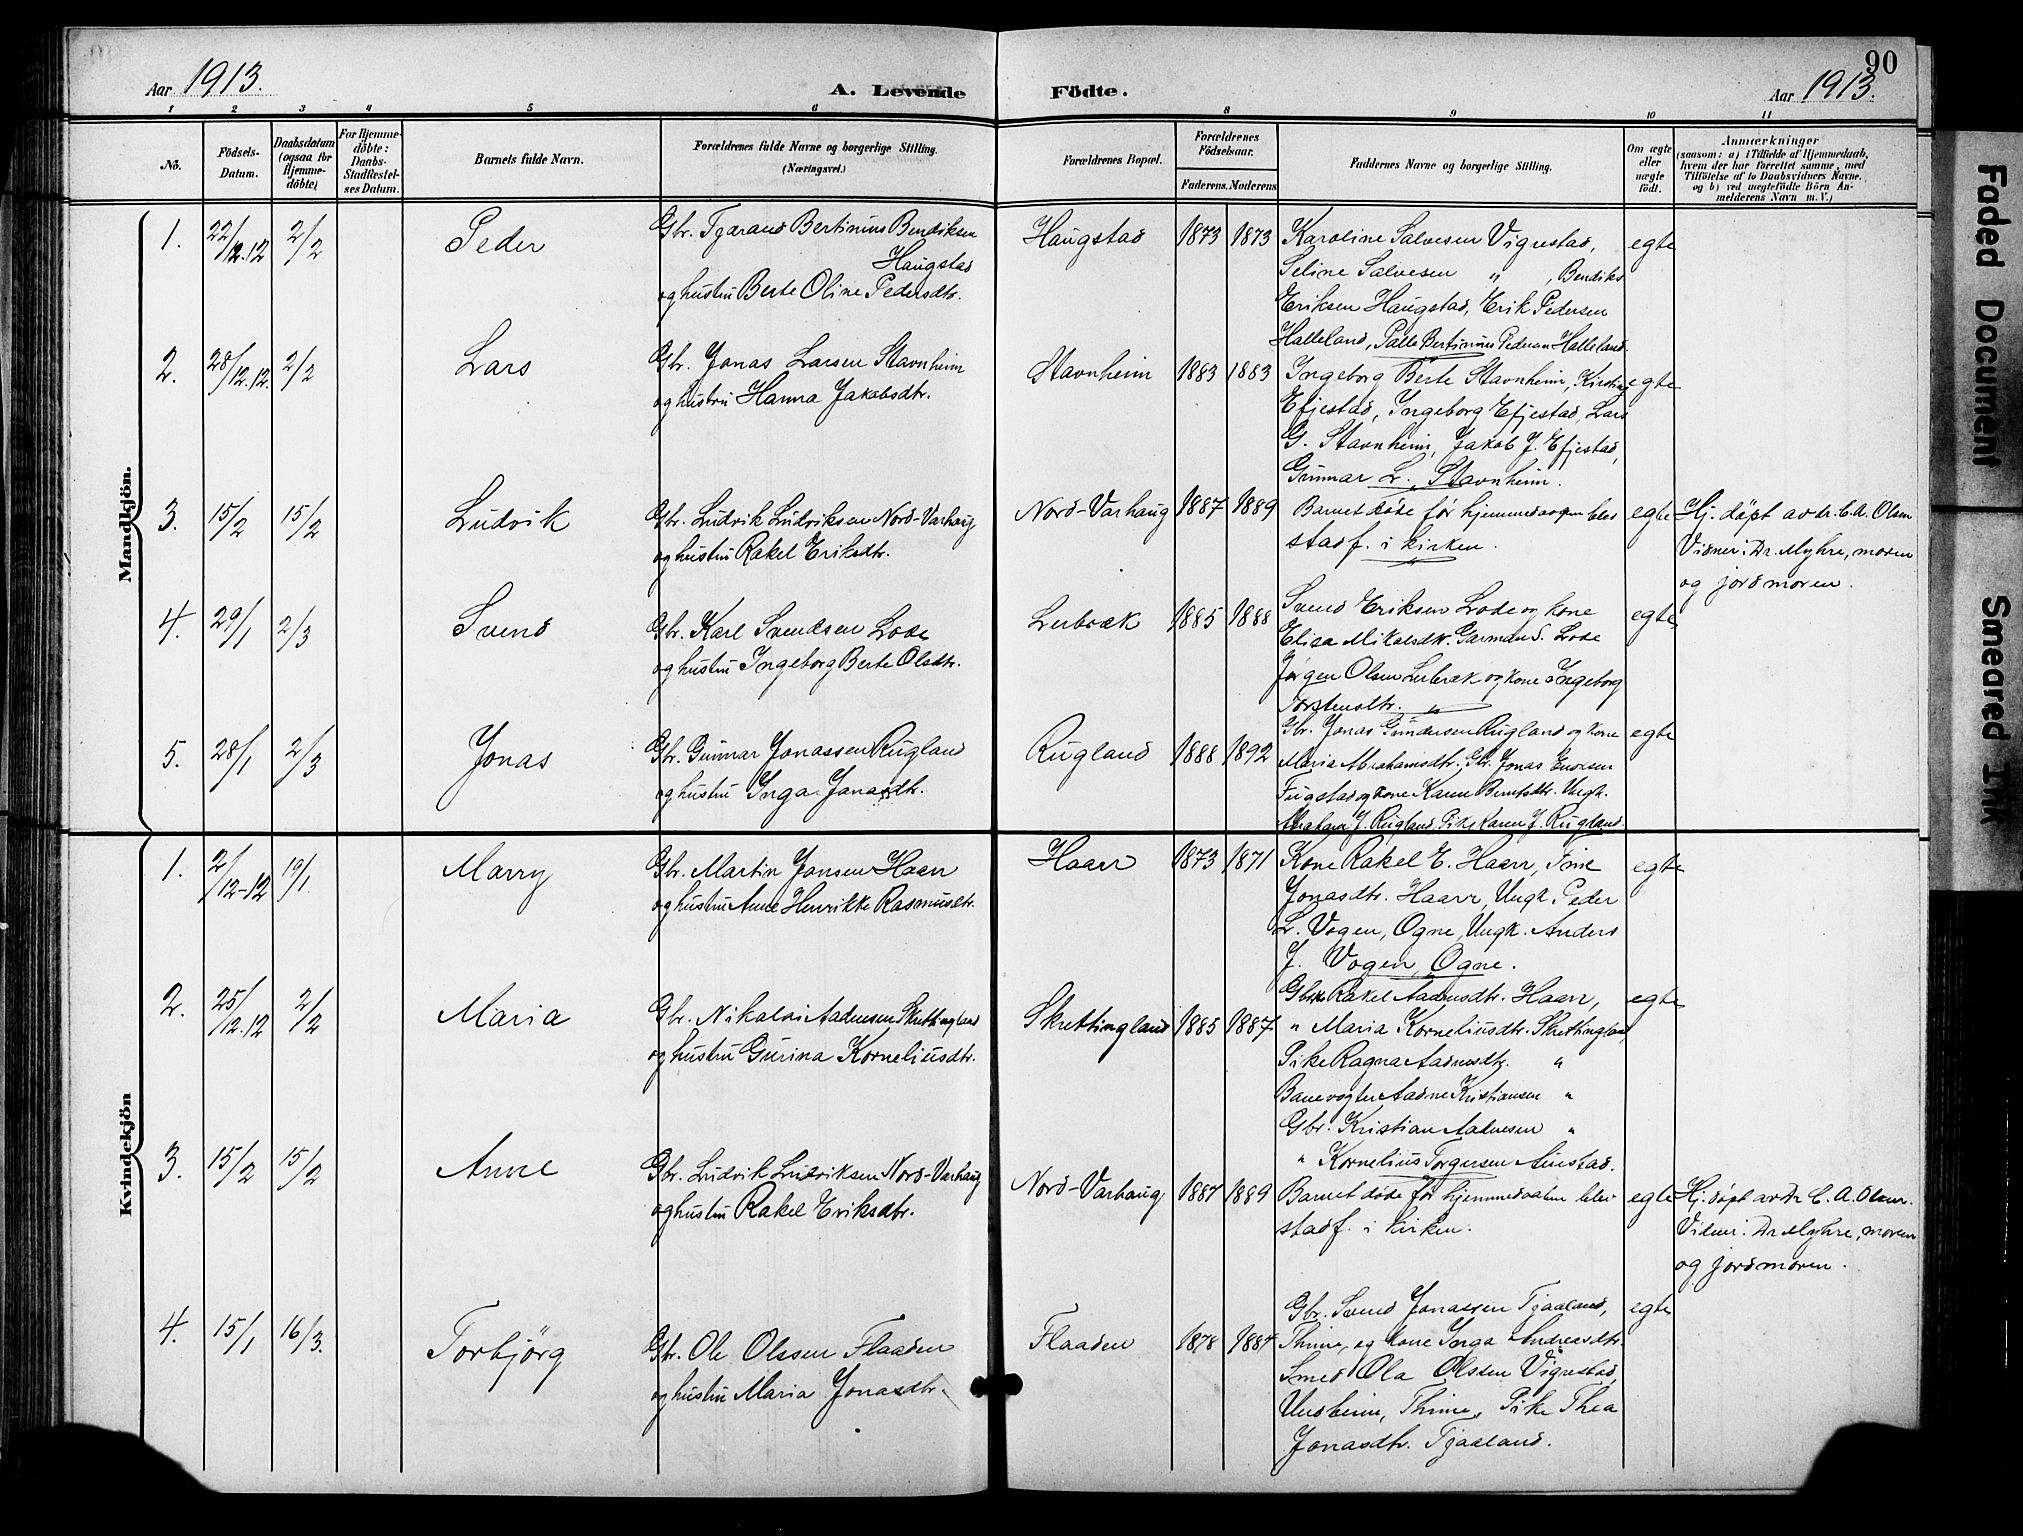 90
Aar 1913.
A. Levende Födte.
Aar 1913.
1 2 3 4 5 6 8 9 10 11
No.
Födsels-
Datum.
Daabsdatum
(ogsaa for
Hjemme-
döbte)
For Hjemme-
döbte:
Daabs-
Stadfæstel-
ses Datum.
Barnets fulde Navn.
Forældrenes fulde Navne og borgerlige Stilling.
(Næringsvei.)
Forældrenes Bopæl.
Forældrenes
Födselsaar.
Faderens. Moderens.
Faddernes Navne og borgerlige Stilling.
Om ægte
eller
uægte
födt.
Anmærkninger
(saasom: a) i Tilfælde af Hjemmedaab,
hvem der har forrettet samme, med
Tilföielse af to Daabsvidners Navne.
og b) ved uægtefödte Börn An-
melderens Navn m. V.)
Mandkjön.
1. 22/12.12 2/2 Peder
Gbr. Tjærand Bertinius Bendiksen
Haugstad
og hustru Berte Oline Pedersdtr.
Haugstad 1873 1873
Karoline Salvesen Vigrestad,
Seline Salvesen „ , Bendiks
Eriksen Haugstad, Erik Pedersen
Halleland, Palle Bertinius Pedersen Halleland.
egte
2. 28/12.12. 2/2 Lars
Gbr. Jonas Larsen Stavnheim
og hustru Hanna Jakobsdtr.
Stavnheim 1883 1883
Ingeborg Berte Stavnheim, Kirstine
Efjestad, Ingeborg Efjestad, Lars
G. Stavnheim, Jakob J. Efjestad,
Gunnar L. Stavnheim.
egte
3. 15/2 15/2 Ludvik
Gbr. Ludvik Ludviksen Nord-Varhaug
og hustru Rakel Eriksdtr.
Nord-Varhaug 1887 1889
Barnet døde før hjemmedaapen blev
stadf. i kirken.
egte
Hj. døpt av dr. C. A. Olsen
Vidner: Dr. Myhre, moren
og jordmoren.
4. 29/1 2/3 Svend
Gbr. Karl Svendsen Lode
og hustru Ingeborg Berte Olsdtr.
Lerbræk 1885 1888
Svend Eriksen Lode og kone
Elisa Mikalsdtr. Garman S. Lode
Jørgen Olsen Lerbræk og kone Ingeborg
Torstensdtr.
egte
5. 28/1 2/3 Jonas
Gbr. Gunnar Jonassen Rugland
og hustru Inga Jonasdtr.
Rugland 1888 1892
Gbr. Jonas Gundersen Rugland og kone
Maria Abrahamsdtr. Gbr. Jonas Endresen
Fugstad og kone Karen Berntsdtr. Ungk.
Abraham J. Rugland. Pike Karen J. Rugland.
egte
Kvindekjön
1. 2/12-12 19/1. Marry
Gbr. Martin Jansen Haarr
og hustru Anne Henrikke Rasmusdtr.
Haarr 1873 1871
Kone Rakel E. Haarr, Tine
Jonasdtr. Haarr, Ungk. Peder
L. Vogen, Ogne, Ungk. Anders
J. Vogen, Ogne.
egte
2. 25/12.12 2/2 Maria
Gbr. Nikolai Aadnesen Skrettingland
og hustru Gurina Korneliusdtr.
Skrettingland 1885 1887
Rakel Aadnesdtr. Haarr,
„ Maria Korneliusdtr. Skrettingland,
Pike Ragna Aadnesdtr. „
Banevogter Aadne Kristiansen „
Gbr. Kristian Aadnesen „
„ Kornelius Torgersen Auestad.
egte
3. 15/2 15/2 Anne
Gbr. Ludvik Ludviksen Nord-Varhaug
og hustru Rakel Eriksdtr.
Nord-Varhaug 1887 1889
Barnet døde før hjemmedaapen blev
stadf. i kirken.
egte
Hj. døpt av Dr C. A. Olsen.
Vidner: Dr Myhre, moren
og jordmoren.
4. 15/1 16/3. Torbjörg
Gbr. Ole Olssen Flaaden
og hustru Maria Jonasdtr.
Flaaden 1878 1887
Gbr. Svend Jonassen Tjaaland,
Thime, og kone Inga Andreasdtr.
Smed Ola Olssen Vigrestad,
Undheim, Thime, Pike Thea
Jonasdtr. Tjaaland.
egte
Faded Document
Smeared Ink